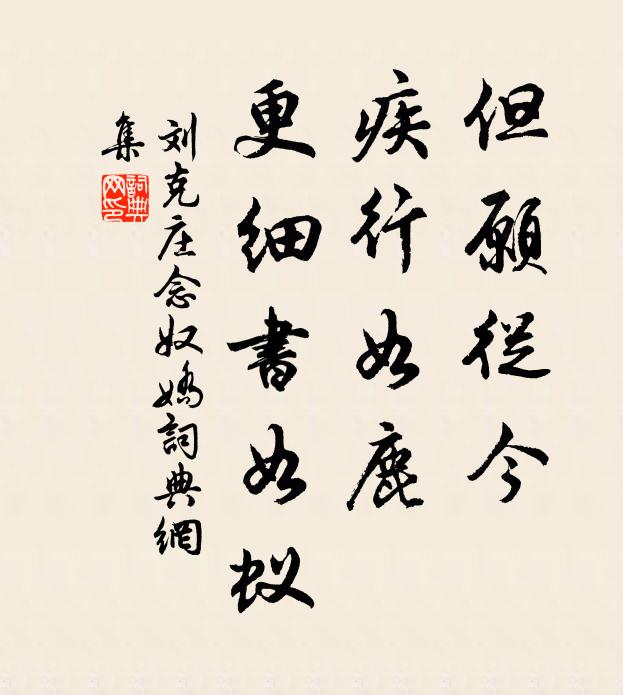 但願從今
疾行如鹿
更细書如蚁
刘克庄念奴嬌詞典網
集
詞典
网印